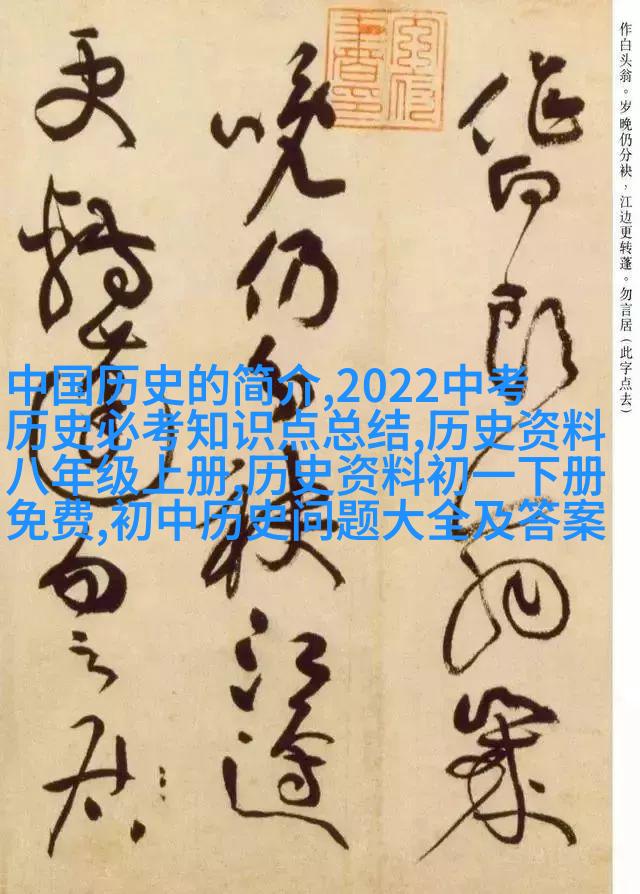 作白头翁。岁晚仍分袂，江边更转蓬。勿言居（此字点去）
作白頭翁歲
晚仍分袂江邊
更轉蓬勿言居
中国历史的简介,2022中考
历史必考知识点总结,历史资料
八年级上册,历史资料初一下册
免费,初中历史问题大全及答案